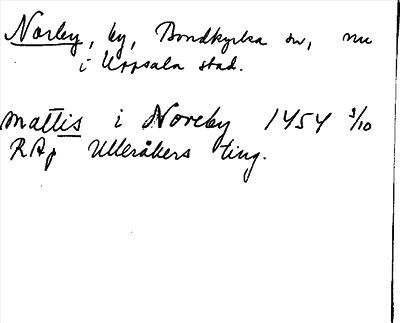 Norby, by, Bondkyrka sn, nu
i Uppsala stad.
mattis i Noreby 1454 3/10
RAp Ulleråkers ting.